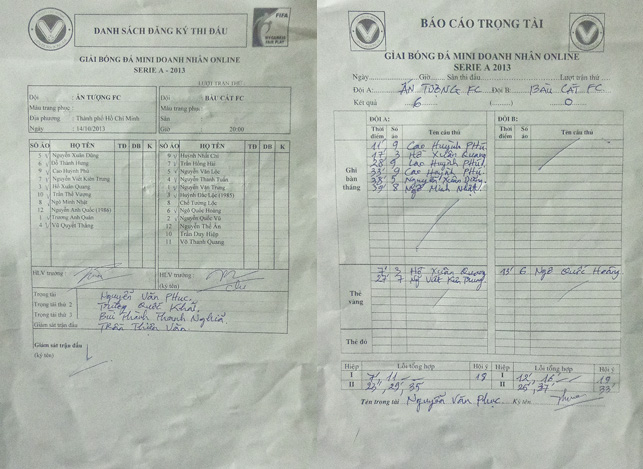 DANH SÁCH ĐĂNG KÝ THI ĐẤU
FIFA
GIẢI BÓNG ĐÁ MINI DOANH NHÂN ONLINE
SERIE A - 2013
LƯỢT TRẬN THỨ
Đội : ẤN TƯỢNG FC
Màu trang phục :
Địa phương : Thành phố Hồ Chí Minh
Ngày : 14/10/2013
Đội : BÀU CÁT FC
Màu trang phục:
Sân :
Giờ : 20:00
SỐ ÁO HỌ TÊN TĐ ĐB K SỐ ÁO HỌ TÊN TĐ ĐB K
5 Nguyễn Xuân Dũng 9 Huỳnh Nhất Chi
6 Đỗ Thành Hưng 7 Trần Hồng Hải
9 Cao Huỳnh Phú 5 Nguyễn Văn Lộc
7 Nguyễn Viết Kiên Trung 4 Nguyễn Thanh Tuấn
3 Hồ Xuân Quang 1 Nguyễn Văn Trung
10 Trần Thế Vương 3 Huỳnh Đắc Lộc (1985)
8 Ngô Minh Nhật 8 Chế Tường Lộc
12 Nguyễn Anh Quốc (1986) 6 Ngô Quốc Hoàng
1 Trương Anh Quân 2 Nguyễn Quốc Vũ
4 Vũ Quyết Thắng 12 Nguyễn Thế Ân
10 Trần Duy Hiệp
11 Võ Thanh Quang
HLV trưởng HLV trưởng
(ký tên)
Trọng tài : Nguyễn Văn Phục.
Trọng tài thứ 2 : Trương Quốc Khải.
Trọng tài thứ 3 : Bùi Thành Thanh Nghĩa.
Giám sát trận đấu : Trần Thiện Văn.
Giám sát trận đấu
(ký tên)
BÁO CÁO TRỌNG TÀI
GIẢI BÓNG ĐÁ MINI DOANH NHÂN ONLINE
SERIE A 2013
Ngày Giờ Sân thi đấu Lượt trận thứ
Đội A: ẤN TƯỢNG FC Đội B BÀU CÁT FC.
Kết quả 6 (........) 0
ĐỘI A: ĐỘI B:
Thời điểm Số áo Tên cầu thủ Thời điểm Số áo Tên cầu thủ
Ghi bàn thắng
11' 9 Cao Huỳnh Phú.
17' 3 Hồ Xuân Quang
28' 9 Cao Huỳnh Phú.
33' 9 Cao Huỳnh Phú
38' 5 Nguyễn Xuân Dũng.
39' 8 Ngô Minh Nhật.
Thẻ vàng
7' 3 Hồ Xuân Quang 13' 6 Ngô Quốc Hoàng.
27' 7 Ng Viết Kiên Trung.
Thẻ đỏ
Hiệp Lỗi tổng hợp Hội ý Hiệp Lỗi tổng hợp Hội ý
I 7', 11 18 I 12', 16' 19
II 23', 29', 35 II 26', 37' 33'
Tên trọng tài Nguyễn Văn Phục. Ký tên